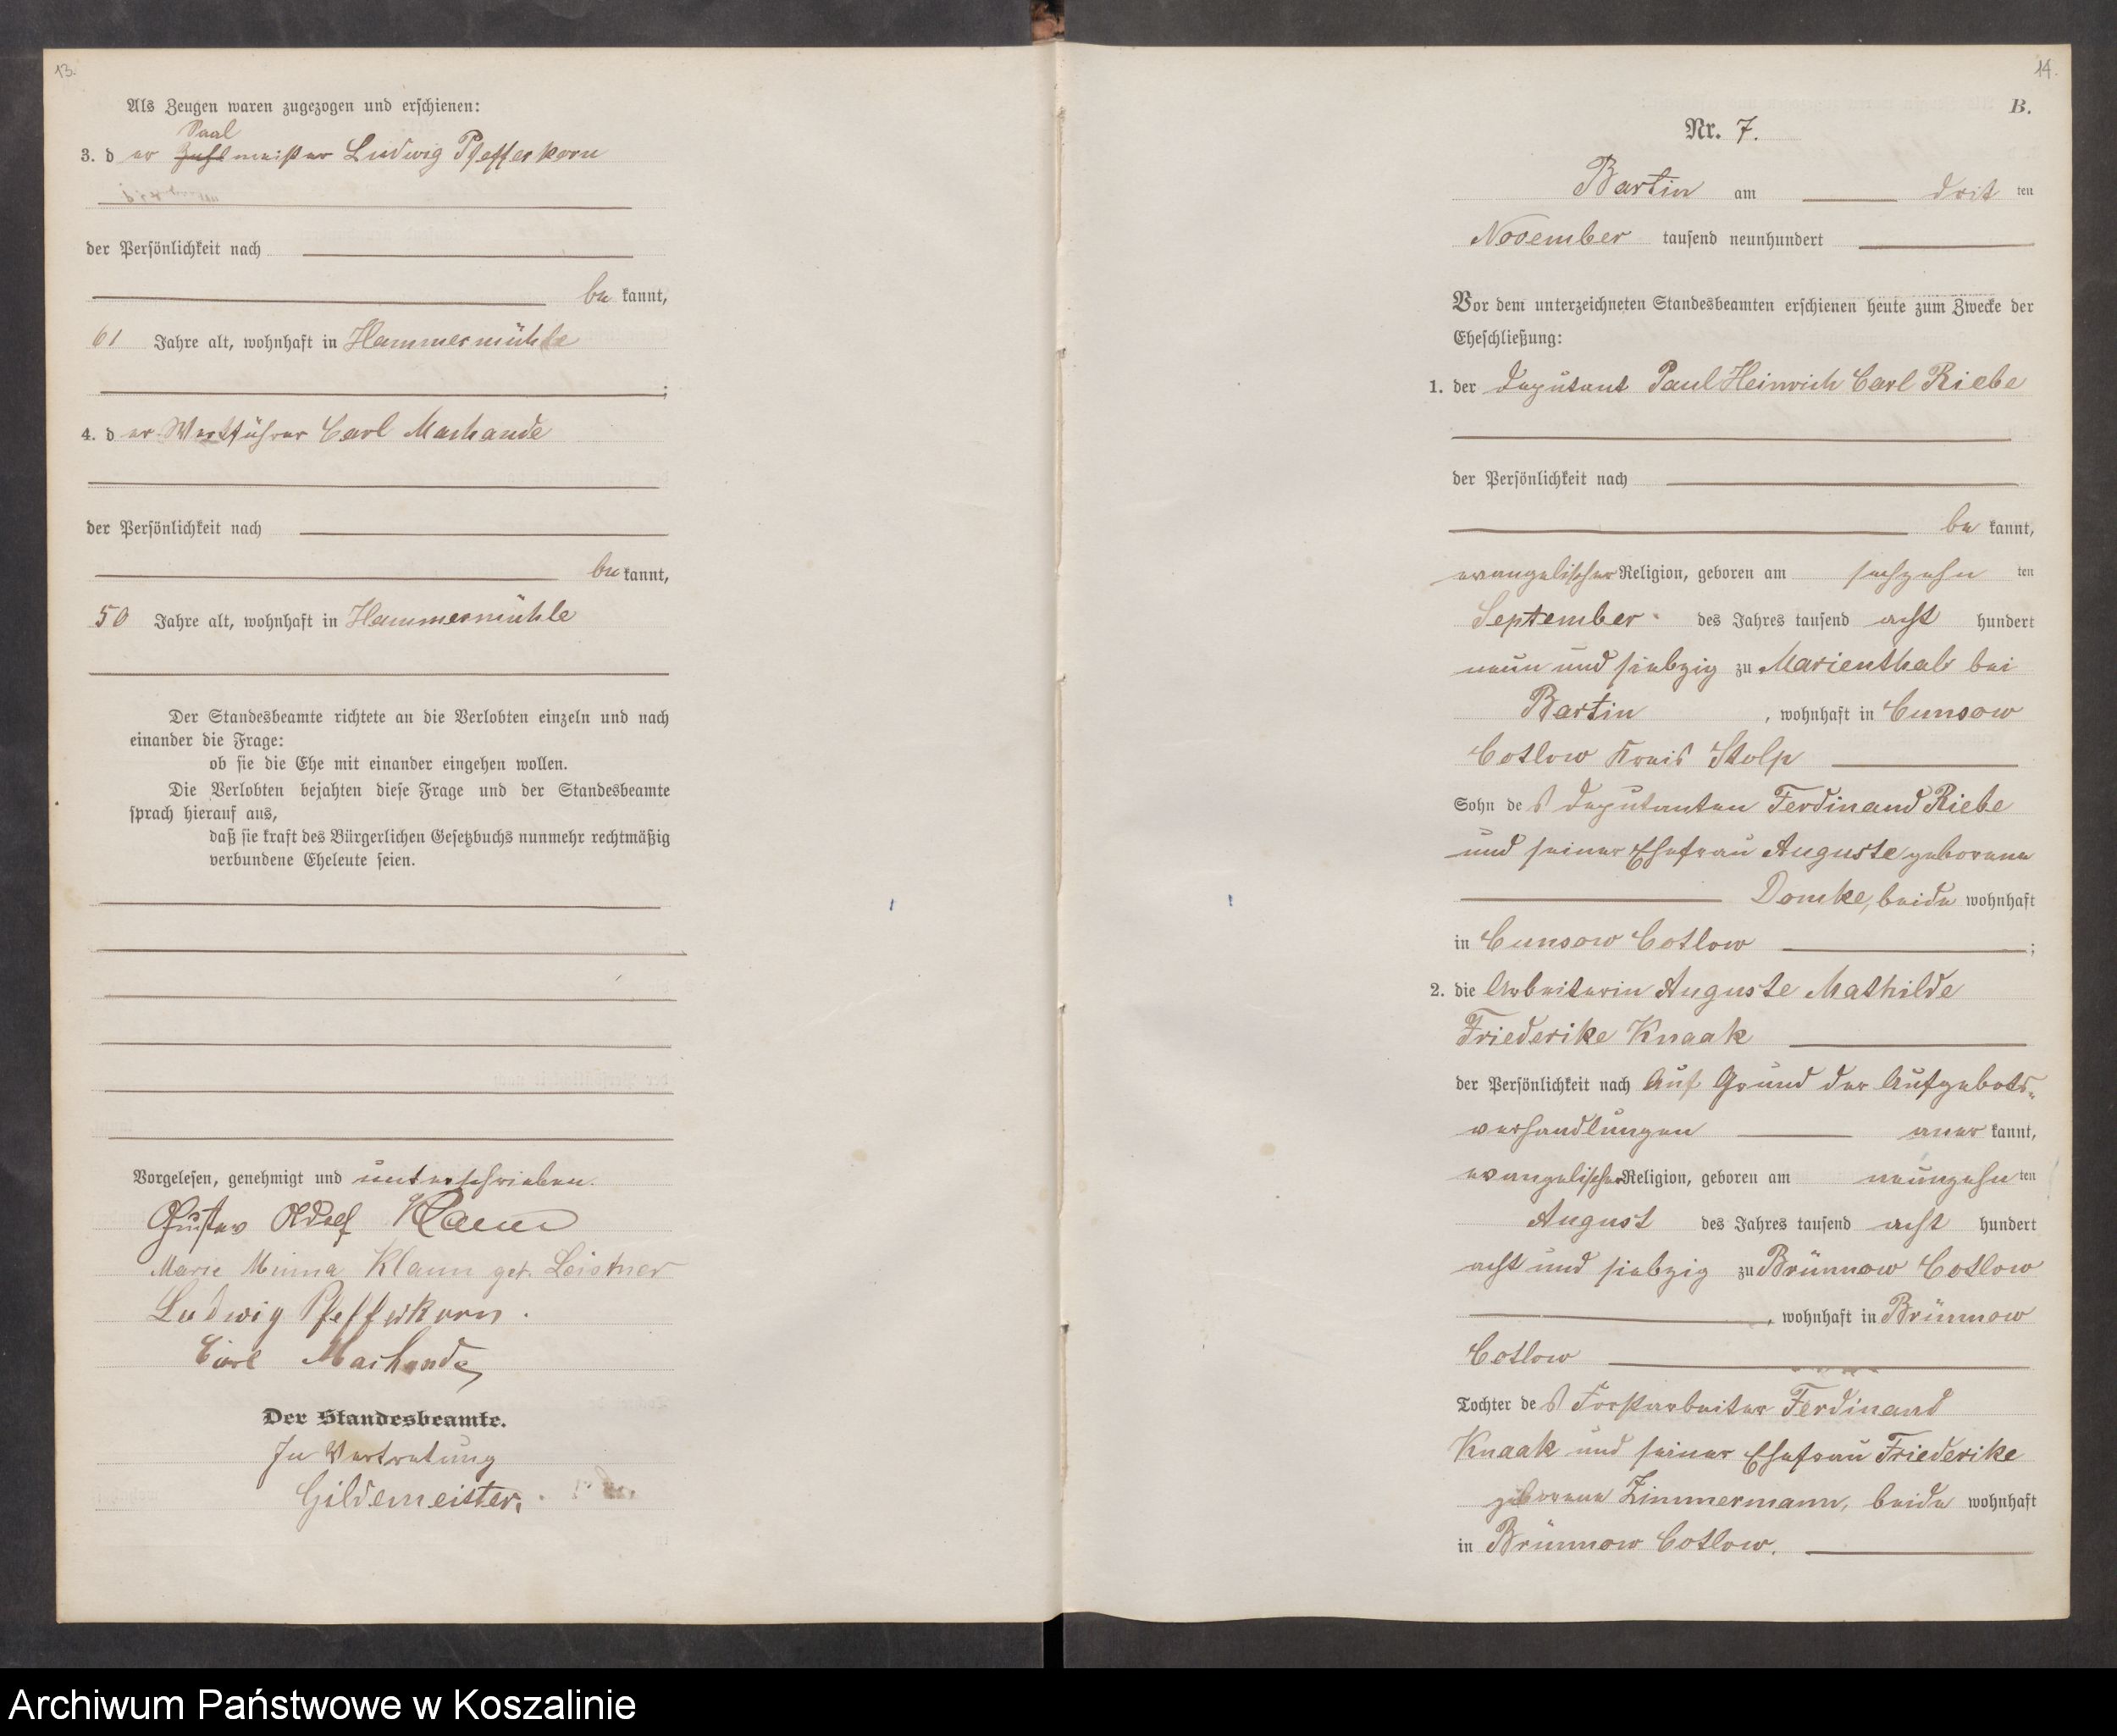 13.
Als Zeugen waren zugezogen und erschienen:
Saal
3. d er Zuhlmeister Ludwig Pfefferkorn
der Persönlichkeit nach
be kannt,
61 Jahre alt, wohnhaft in Hammermühle
;
4. d er Werkführer Carl Machande
der Persönlichkeit nach
be kannt,
50 Jahre alt, wohnhaft in Hammermühle
Der Standesbeamte richtete an die Verlobten einzeln und nach
einander die Frage:
ob sie die Ehe mit einander eingehen wollen.
Die Verlobten bejahten diese Frage und der Standesbeamte
sprach hierauf aus,
daß sie kraft des Bürgerlichen Gesetzbuchs nunmehr rechtmäßig
verbundene Eheleute seien.
Vorgelesen, genehmigt und unterschrieben.
Gustav Adolf Klann
Marie Minna Klann geb. Leistner
Ludwig Pfefferkorn.
Carl Machande
Der Standesbeamte.
In Vertretung
Gildemeister.
14.
B.
Nr. 7.
Bartin am drit ten
November tausend neunhundert
Vor dem unterzeichneten Standesbeamten erschienen heute zum Zwecke der
Eheschließung:
1. der Deputant Paul Heinrich Carl Riebe
der Persönlichkeit nach
be kannt,
evangelischer Religion, geboren am sechzehn ten
September des Jahres tausend acht hundert
neun und siebzig zu Marienthal bei
Bartin , wohnhaft in Cunsow
Cotlow Kreis Stolp
Sohn de s Deputanten Ferdinand Riebe
und seiner Ehefrau Auguste geborene
Domke, beide wohnhaft
in Cunsow Cotlow ;
2. die Arbeiterin Auguste Mathilde
Friederike Knaak
der Persönlichkeit nach Auf Grund der Aufgebots-
verhandlungen aner kannt,
evangelischer Religion, geboren am neunzehn ten
August des Jahres tausend acht hundert
acht und siebzig zu Brünnow Cotlow
, wohnhaft in Brünnow
Cotlow
Tochter de s Forstarbeiter Ferdinand
Knaak und seiner Ehefrau Friederike
geborene Zimmermann, beide wohnhaft
in Brünnow Cotlow.
Archiwum Państwowe w Koszalinie